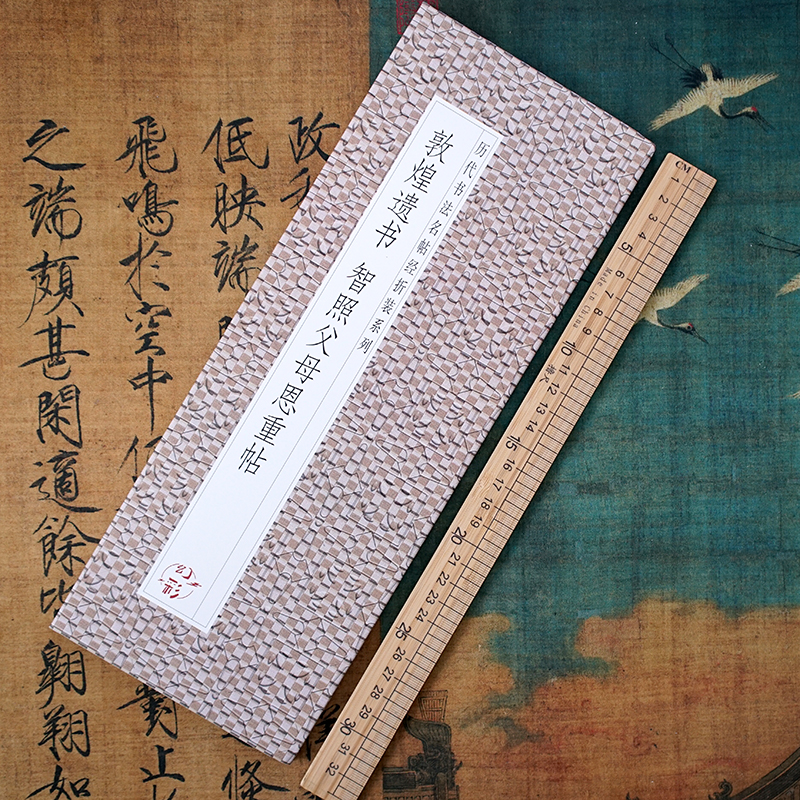 历代书法名帖经折装系列
敦煌遗书 智照父母恩重帖
幻彩
CM
1 2 3 4 5 6 7 8 9 10 11 12 13 14 15 16 17 18 19 20 21 22 23 24 25 26 27 28 29 30 31 32
Made in China
低映端
飛鳴於空中
之端頗甚閑適餘比翱翔如
對上
條